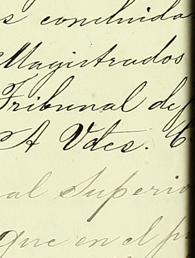 s concluida
Magistrados
Tribunal de
A Vdes.
al Superio
que en el